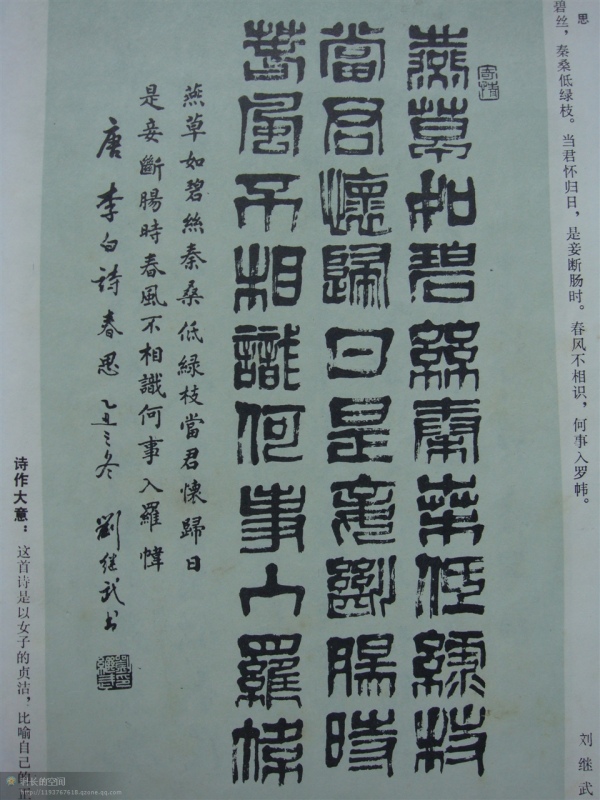 思
刘继武
碧丝，秦桑低绿枝。当君怀归日，是妾断肠时。春风不相识，何事入罗帏。
寄情
燕草如碧絲秦桑低緑枝
當君懷歸日是妾斷腸時
春風不相識何事入羅幃
燕草如碧絲秦桑低緑枝當君懷歸日
是妾斷腸時春風不相識何事入羅幃
唐李白詩春思乙丑之冬劉继武书
诗作大意：这首诗是以女子的贞洁，比喻自己的
村长的空间
http://1193767618.qzone.qq.com